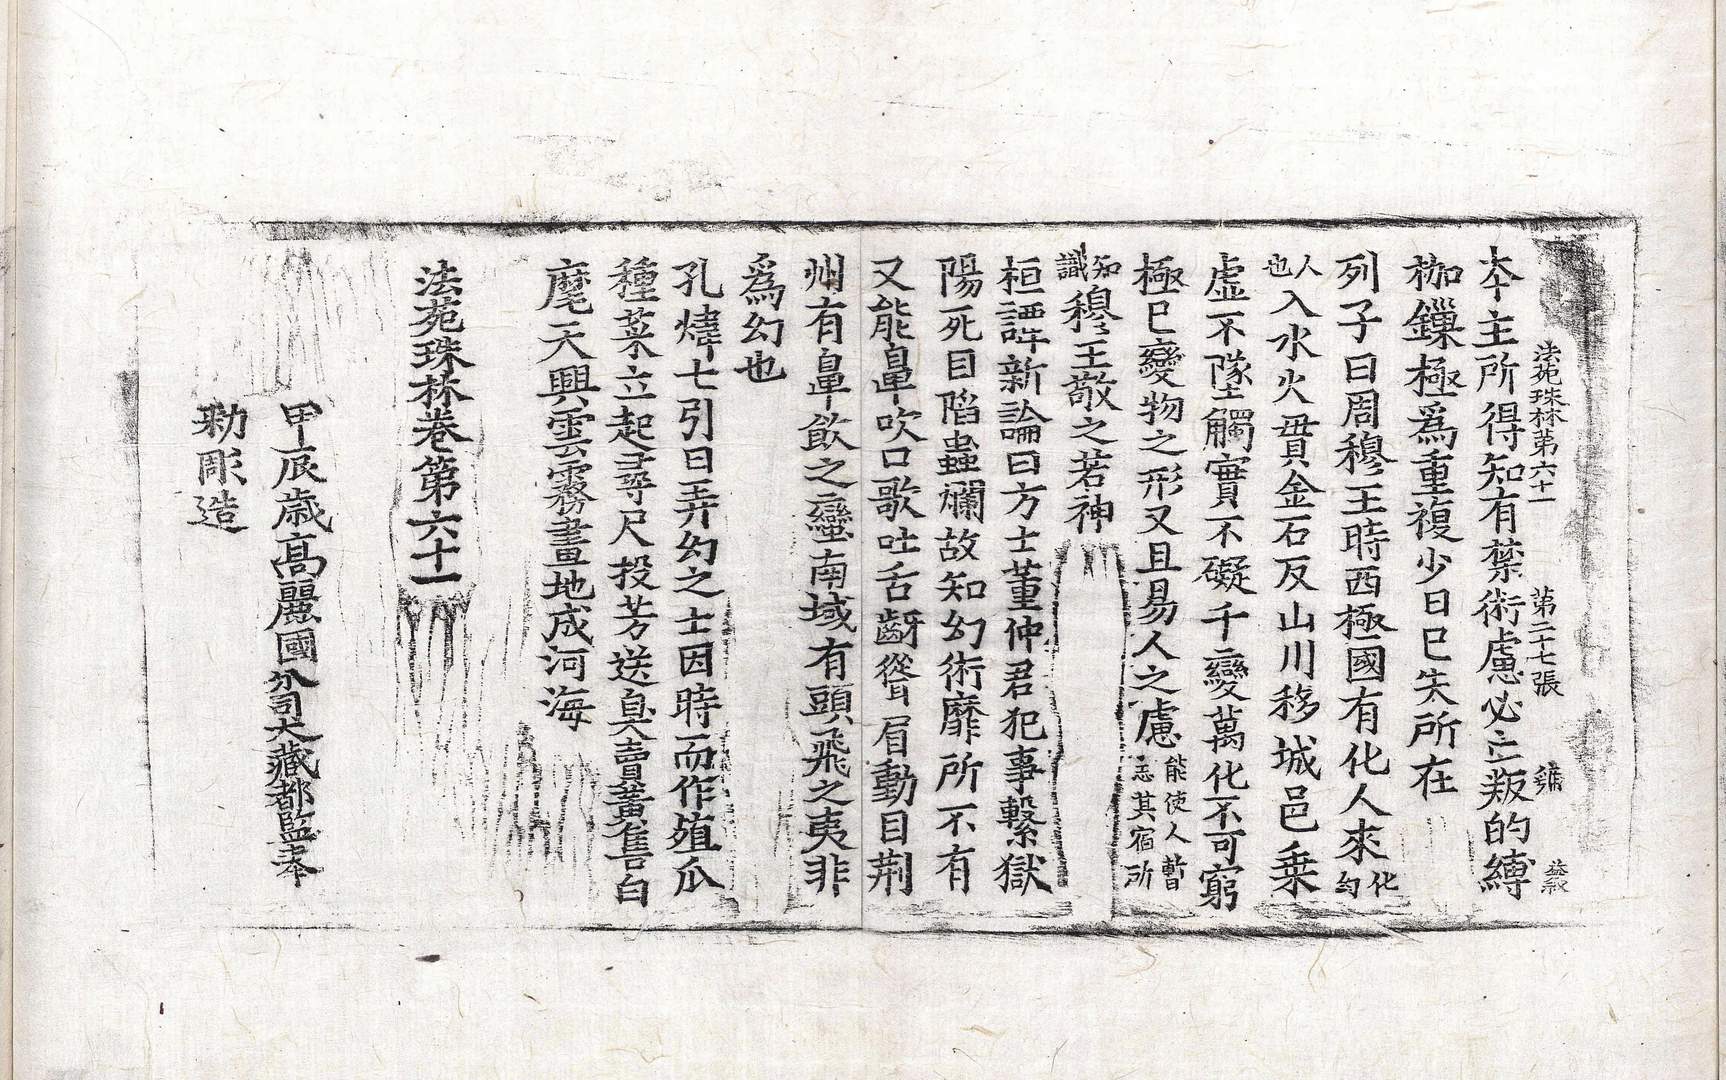 法苑珠林第六十一 第二十七張
夲主所得知有禁術慮必亡叛的縛
枷鏁極爲重複少日已失所在
列子曰周穆王時西極國有化人來化幻
人也入水火貫金石反山川移城邑乗
虛不墜觸實不礙千變萬化不可窮
極已變物之形又且易人之慮能使人暫忘其宿所
知識穆王敬之若神
桓譚新論曰方士董仲君犯事繫獄
陽死目陷蟲爛故知幻術靡所不有
又能鼻吹口歌吐舌齖聳眉動目荆
州有鼻飲之蠻南域有頭飛之夷非
爲幻也
孔煒七引曰弄幻之士因時而作殖瓜
種菜立起尋尺投芳送臭賣黃售白
麾天興雲霧畫地成河海
法苑珠林卷第六十一
甲辰歳高麗國分司大藏都監奉
勑彫造